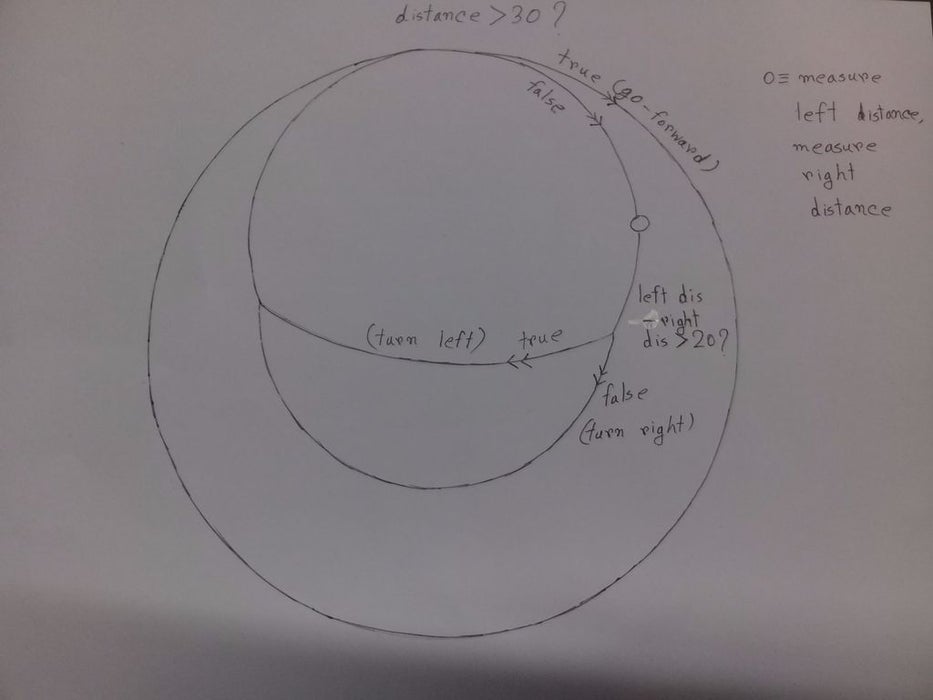 distance > 30 ?
true (go-forward)
false
O ≡ measure
left distance,
measure
right
distance
left dis
- right
dis > 20 ?
(turn left) true
false
(turn right)